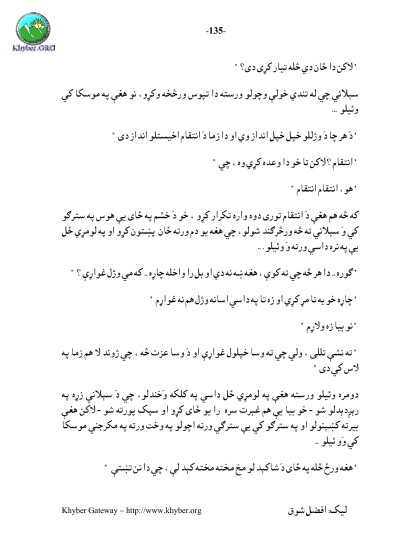 Khyber.ORG
-135-
" لاکن دا ځان دي څله تيار کړی دی؟ "
سپلاني چي له تندي خولي وچولو ورسته دا تپوس ورځخه وکړو ، نو هغې په موسکا کي
وئيلو ...
" دَ هر چا دَ وژللو خپل خپل انداز وي او دا زما دَ انتقام اخيستلو انداز دی "
" انتقام ؟ لاکن تا خو دا وعده کړې وه ، چي "
" هو ، انتقام انتقام انتقام "
که څه هم هغې دَ انتقام توری دوه واره تکرار کړو ، خو دَ خشم په ځای يې هوس په سترګو
کي وَ سپلاني ته څه ورڅرګند شولو ، چي هغه يو دم ورته ځان پښتون کړو او په لومړي ځل
يې په نره داسي ورته وَ وئيلو ...
" ګوره .. دا هر څه چي ته کوې ، هغه ښه نه دي او بل را واخله چاړه .. که مي وژل غواړې ؟ "
" چاړه خو به تا مړ کړي او زه تا په داسي اسانه وژل هم نه غواړم "
" نو بيا زه ولاړم "
" ته نشې تللی ، ولي چي ته وسا خپلول غواړې او دَ وسا عزت څه ، چي ژوند لا هم زما په
لاس کي دی "
دومره وئيلو ورسته هغې په لومړي ځل داسي په کلکه وَخندلو ، چي دَ سپلاني زړه په
رېږدېدلو شو - خو بيا يې هم غېرت سره را يو ځای کړو او سيک پورته شو - لاکن هغې
بېرته کښېنولو او په سترګو کي يې سترګي ورته اچولو په وخت ورته په مکرجني موسکا
کي وَو ئيلو ..
" هغه ورځ څله په ځای دَ شاکېد لو مخ مخته مخته کېد لې ، چي دا نن تښتې "
Khyber Gateway – http://www.khyber.org
ليک: افضل شوق